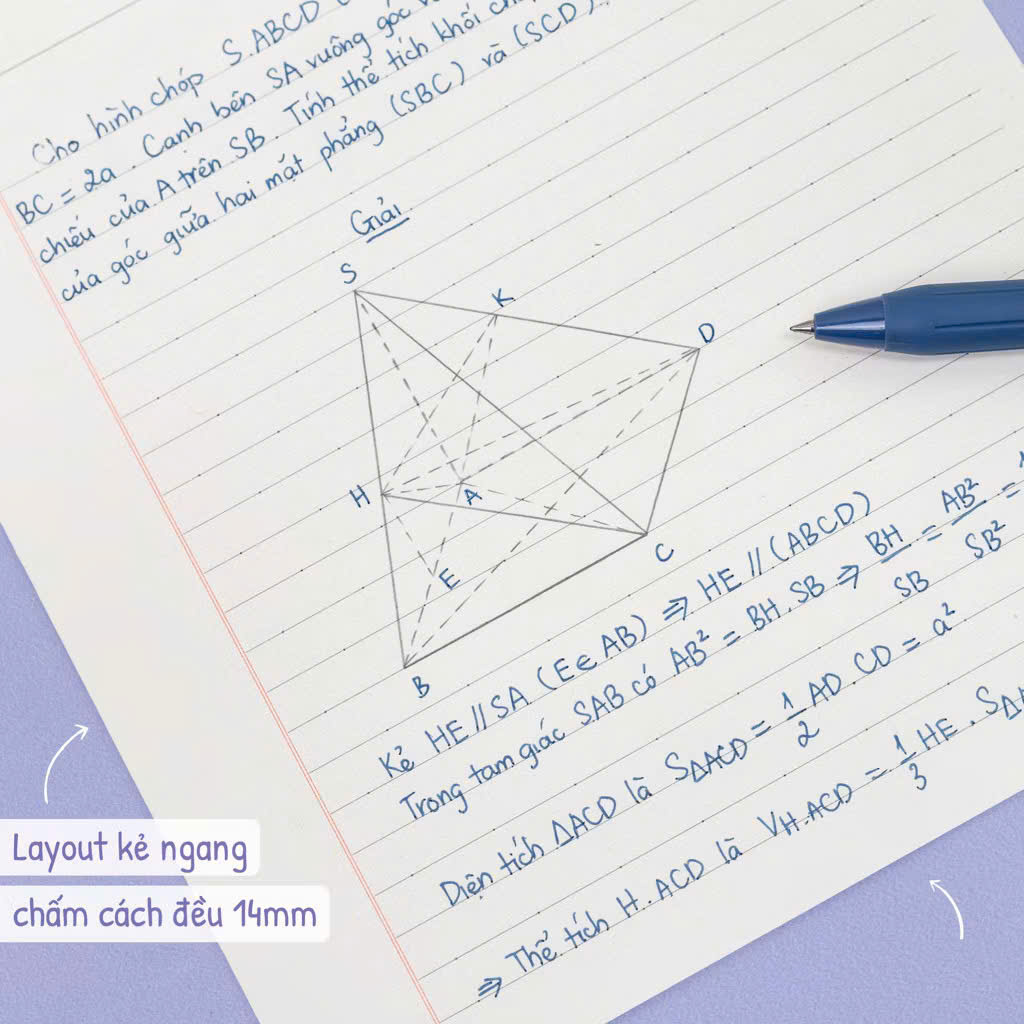 Cho hình chóp S.ABCD
BC = 2a. Cạnh bên SA vuông góc
chiếu của A trên SB. Tính thể tích khối
của góc giữa hai mặt phẳng (SBC) và (SCD).
Giải.
S
K
D
H
A
C
E
B
Kẻ HE // SA (E ∈ AB) ⇒ HE // (ABCD)
Trong tam giác SAB có AB² = BH. SB ⇒ BH/SB = AB²/SB² =
Diện tích ΔACD là SΔACD = 1/2 AD. CD = a²
⇒ Thể tích H.ACD là VH.ACD = 1/3 HE.
Layout kẻ ngang
chấm cách đều 14mm